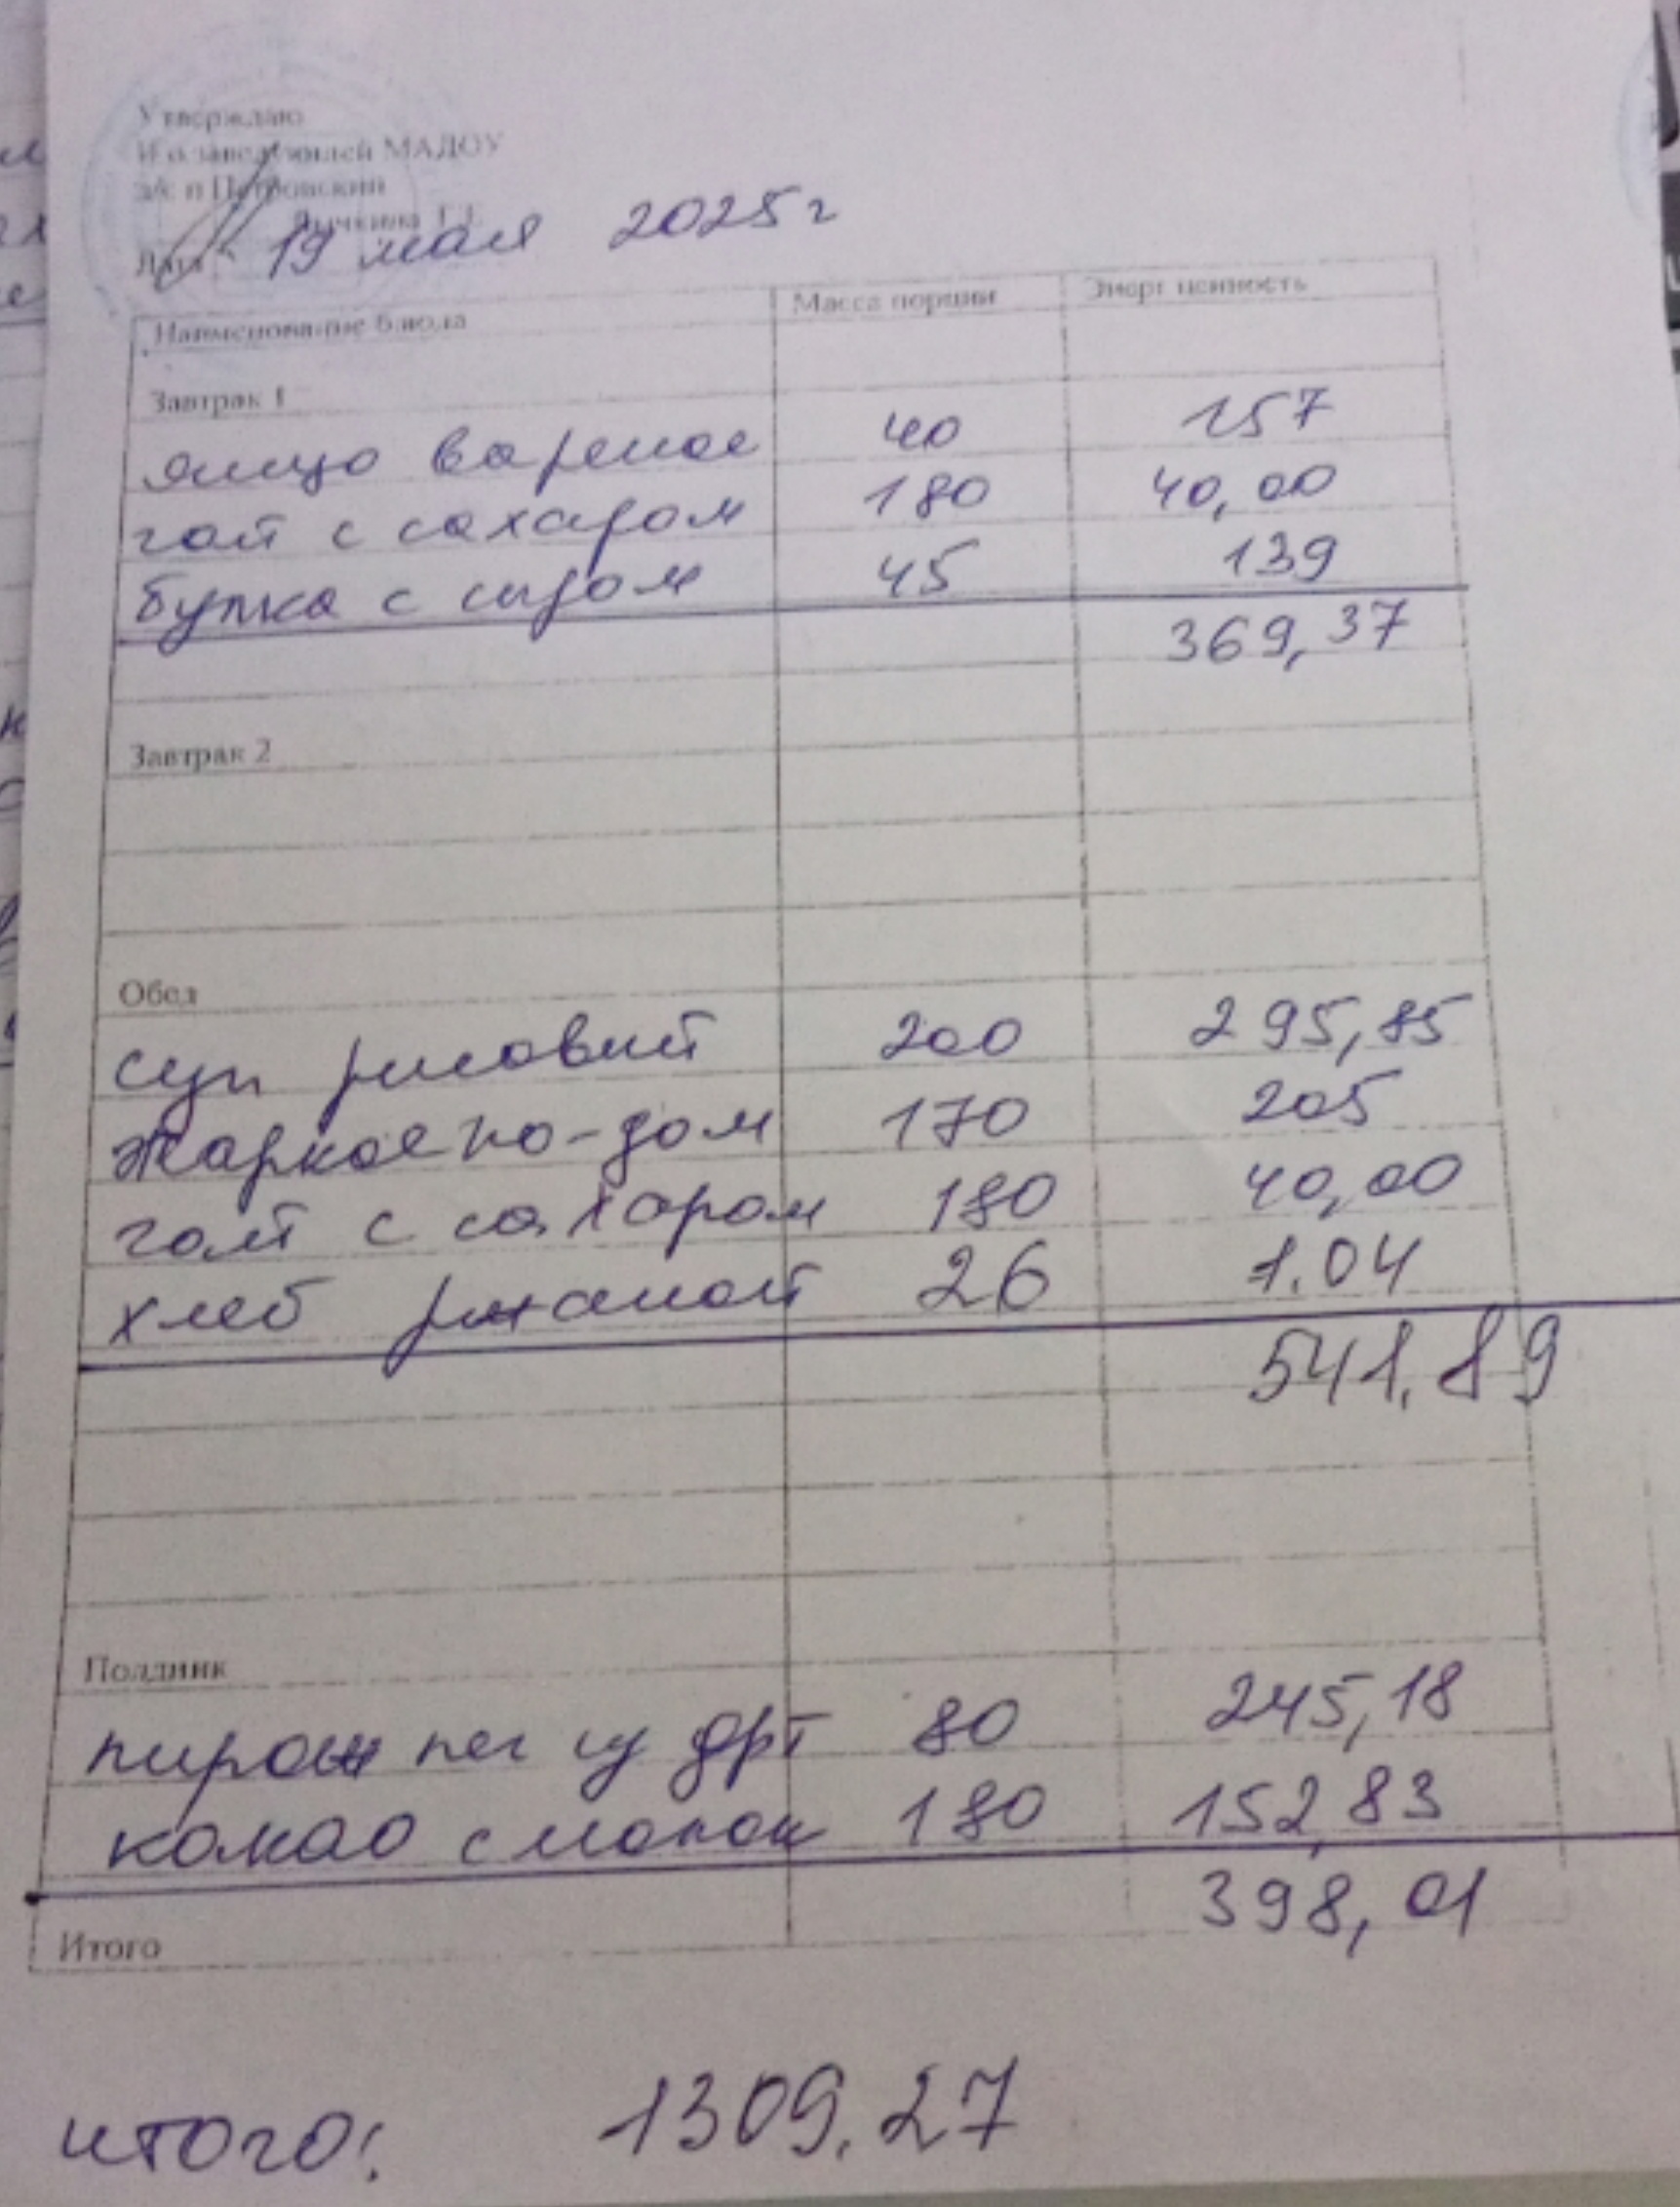 Утверждаю
И о заведующей МАДОУ
д/с п Петровский
Лычкина
Дата 19 мая 2025 г
Наименование блюда Масса порции Энерг ценность
Завтрак 1
яйцо вареное 40 157
чай с сахаром 180 40,00
булка с сыром 45 139
369,37
Завтрак 2
Обед
суп рисовый 200 295,85
жаркое по-дом 170 205
чай с сахаром 180 40,00
хлеб ржаной 26 1.04
541.89
Полдник
пирож печ из дрт 80 245,18
какао с молок 180 152,83
398,01
Итого
итого: 1309.27